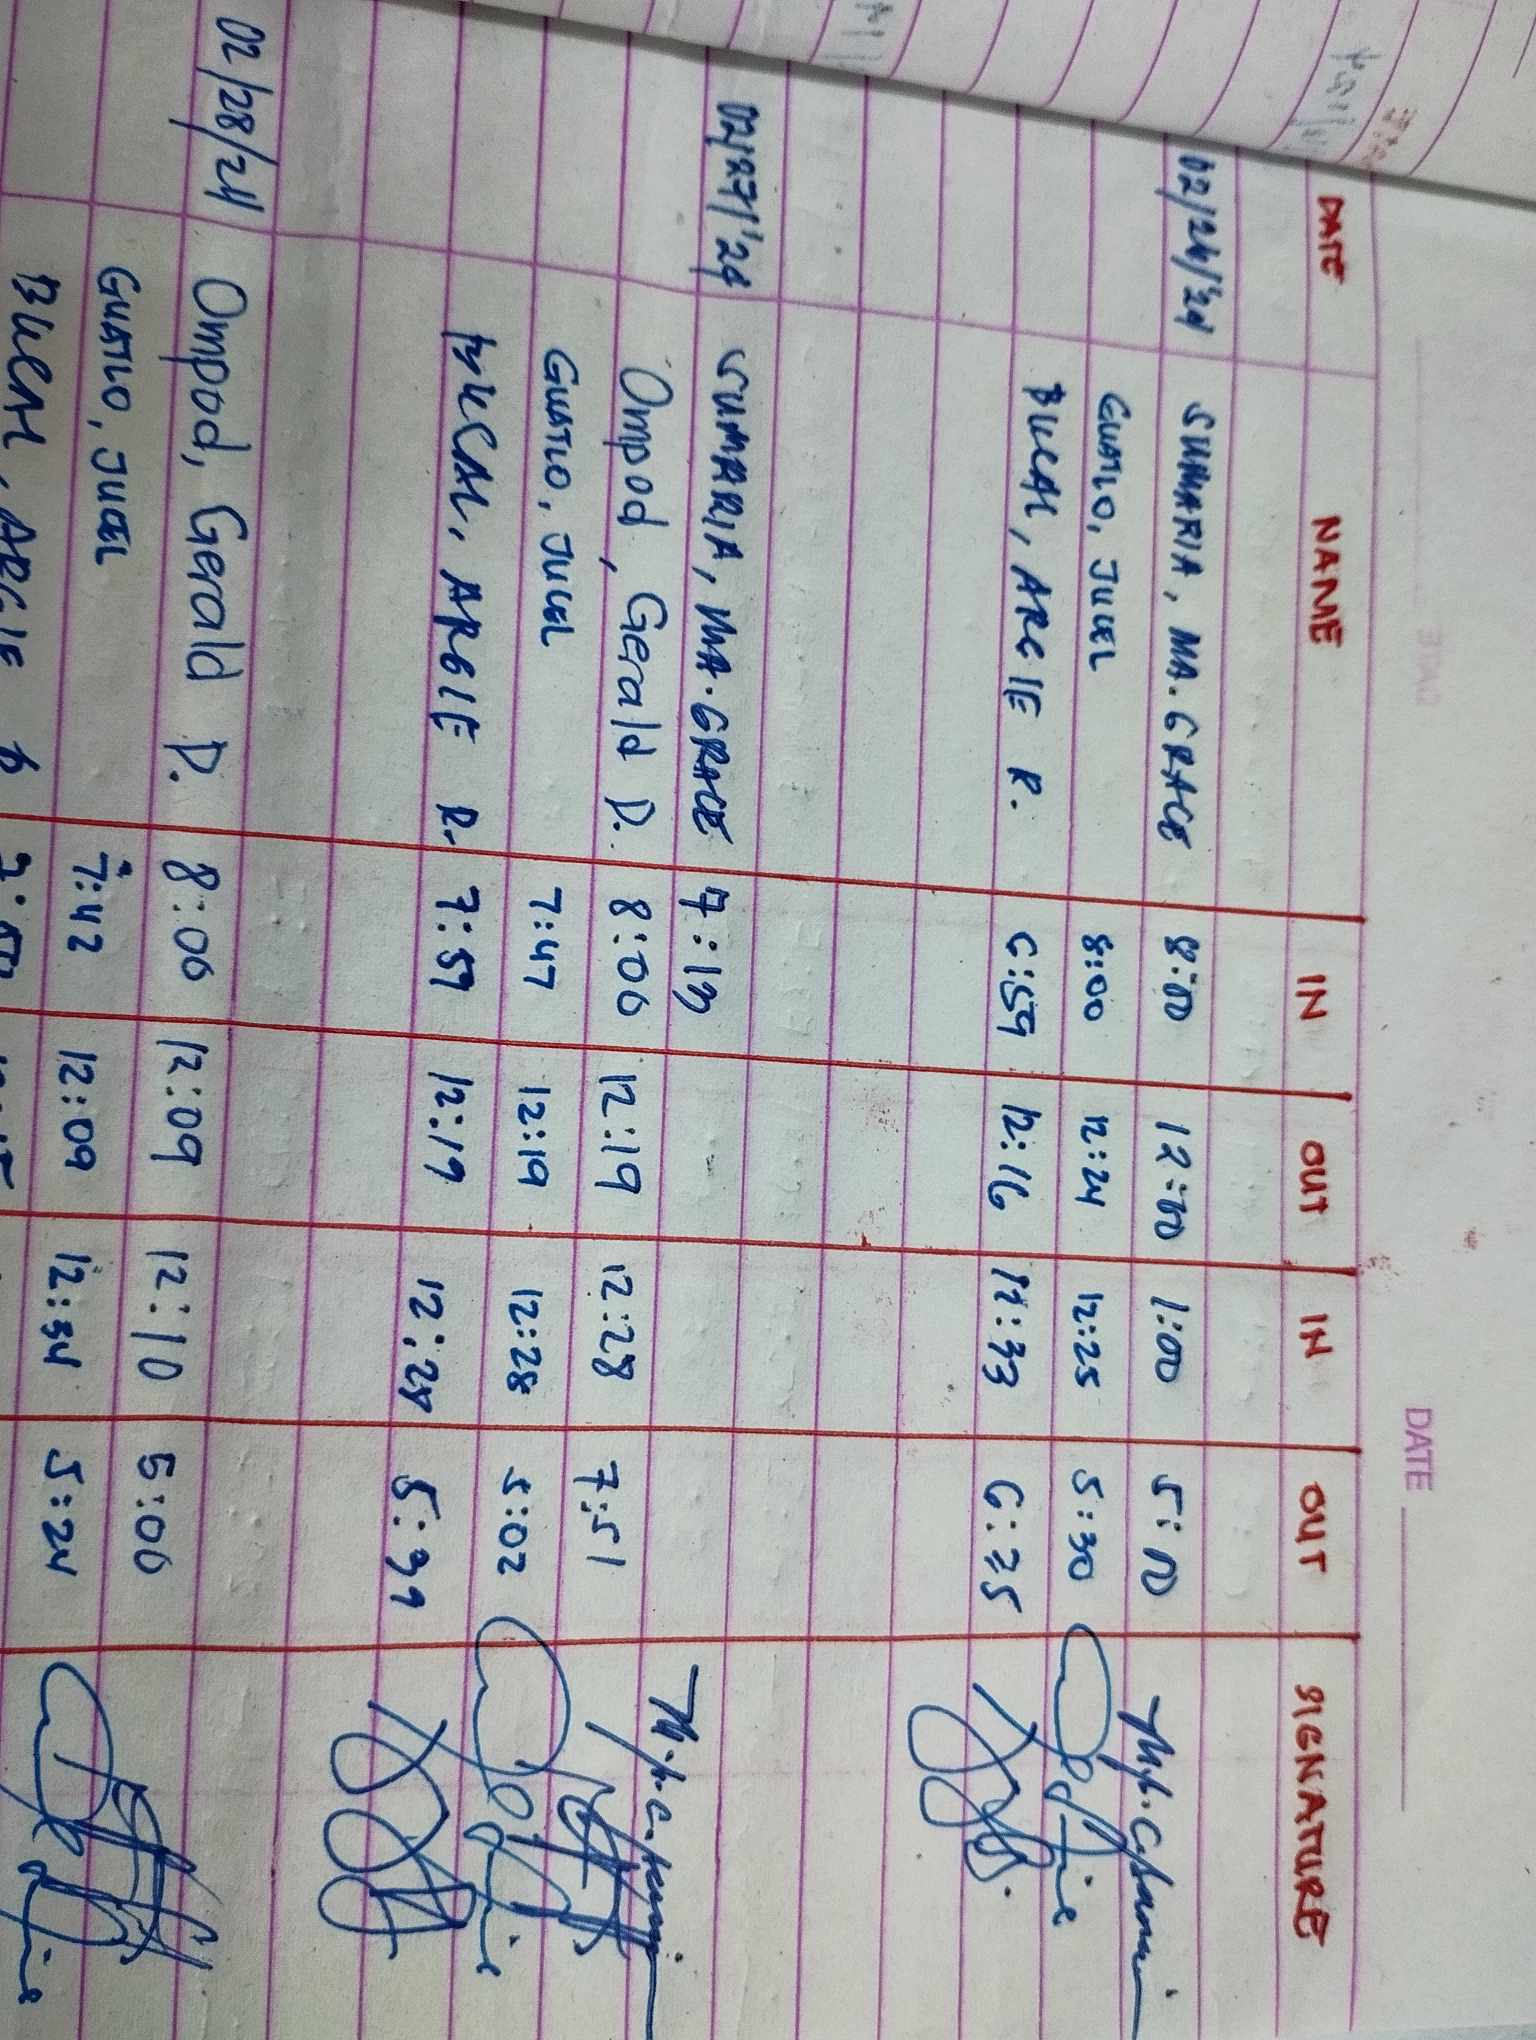 DATE
DATE NAME IN OUT IN OUT SIGNATURE
02/26/'24 SUMARIA, MA. GRACE 8:00 12:00 1:00 5:00
GUATLO, JUCEL 8:00 12:24 12:25 5:30
BUCAL, ARGIE R. 6:59 12:16 12:33 6:35
02/27/'24 SUMARIA, MA. GRACE 7:13
Ompod, Gerald D. 8:06 12:19 12:28 7:51
GUATLO, JUCEL 7:47 12:19 12:28 5:02
BUCAL, ARGIE R. 7:59 12:19 12:28 5:39
02/28/24 Ompod, Gerald D. 8:06 12:09 12:10 5:06
GUATLO, JUCEL 7:42 12:09 12:34 5:24
BUCAL, ARGIE